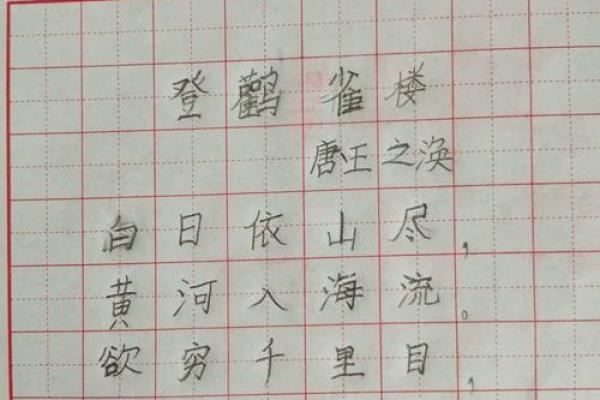 登鹳雀楼
唐·王之涣
白日依山尽，
黄河入海流。
欲穷千里目，